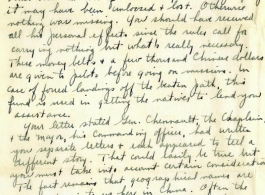 it may have been removed & lost. Otherwise
nothing was missing. You should have received
all his personal effects since the rules call for
carrying nothing but what is really necessary.
These money belts & a few thousand Chinese dollars
are given to pilots before going on missions. In
case of forced landings off the beaten path, this
fund is used in getting the natives to lend you
assistance.
Your letter stated Gen. Chennault, the Chaplain,
& the Major, his commanding officer, had written
you separate letters & each appeared to tell a
different story. That could be true but
you must take into account certain considerations
The fact remains that geographical names are
here in China. Often the